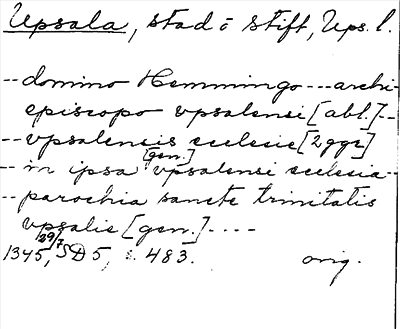 Upsala, stad o stift, Ups. l.
-- domino Hemmingo --- archi-
episcopo vpsalensi [abl.] --
-- vpsalensis ecclesie [2 ggr]
[gen.]
-- in ipsa vpsalensi ecclesia --
-- parochia sancte trinitatis
vpsalie [gen.] ----
1345, 29/7 SD 5, s. 483. orig.